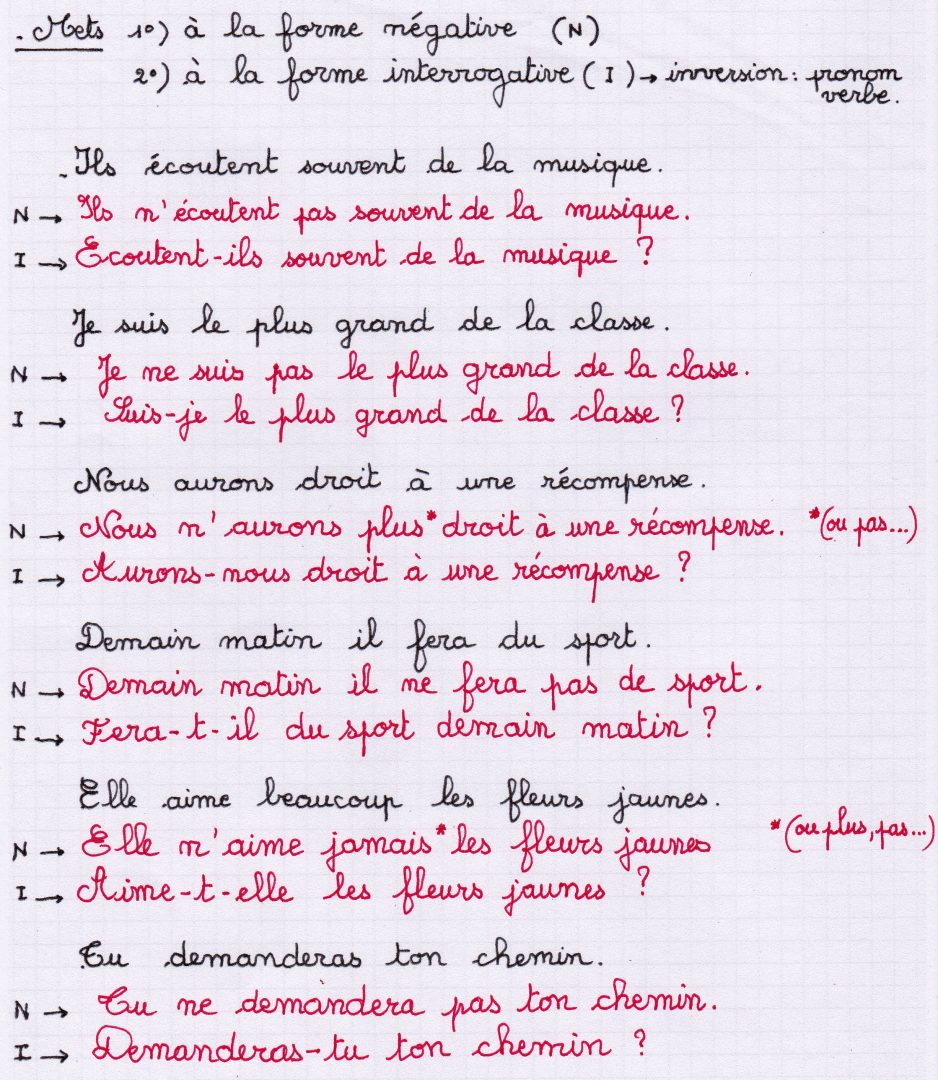 . Mets 1°) à la forme négative (N)
2°) à la forme interrogative (I) → inversion : pronom
verbe.
. Ils écoutent souvent de la musique.
N → Ils n'écoutent pas souvent de la musique.
I → Ecoutent-ils souvent de la musique ?
Je suis le plus grand de la classe.
N → Je ne suis pas le plus grand de la classe.
I → Suis-je le plus grand de la classe ?
Nous aurons droit à une récompense.
N → Nous n'aurons plus* droit à une récompense. *(ou pas...)
I → Aurons-nous droit à une récompense ?
Demain matin il fera du sport.
N → Demain matin il ne fera pas de sport.
I → Fera-t-il du sport demain matin ?
Elle aime beaucoup les fleurs jaunes.
N → Elle n'aime jamais* les fleurs jaunes *(ou plus, pas...)
I → Aime-t-elle les fleurs jaunes ?
Tu demanderas ton chemin.
N → Tu ne demandera pas ton chemin.
I → Demanderas-tu ton chemin ?